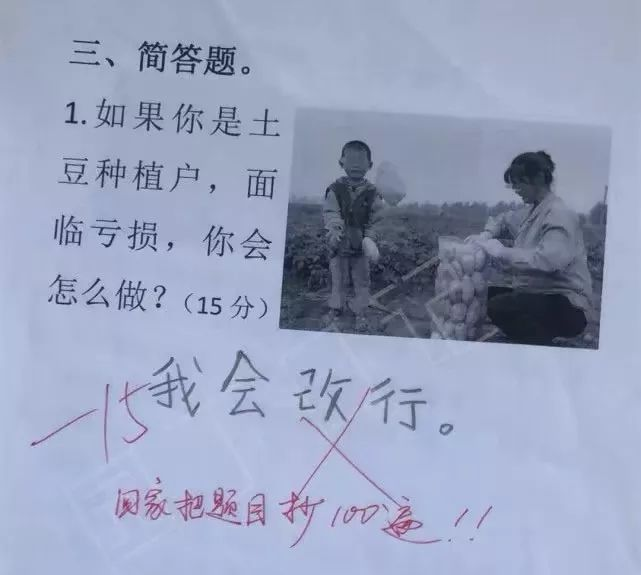 三、简答题。
1.如果你是土
豆种植户，面
临亏损，你会
怎么做？(15分)
我会改行。
-15
回家把题目抄100遍!!